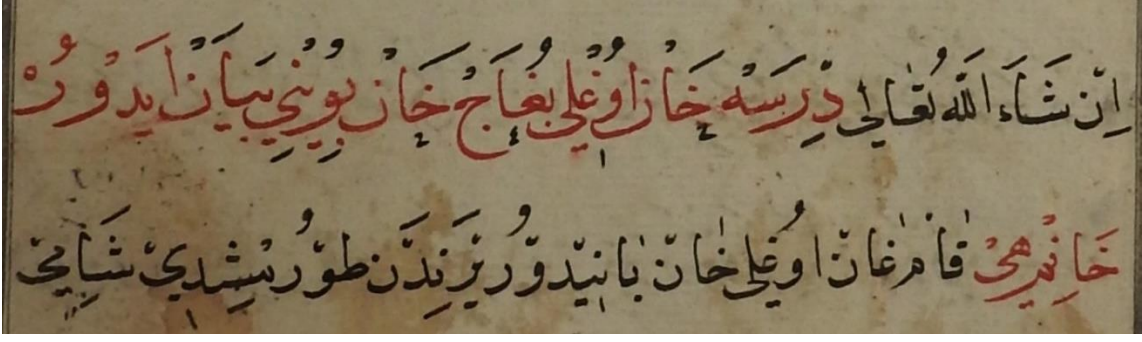 اِنْ شَاءَ اللّٰه تَعَالٰى دِرْسَه خَانْ اوُغْلِى بُغَاجْ خَانْ بوُينِى بَيَانْ اَيدَرْ
خَانُم هَىْ قَامْ غَانْ اوُغْلِى خَانْ بَايِنْدُرْ يِرِنْدَنْ طوُرْمِشِدِى شَامِى